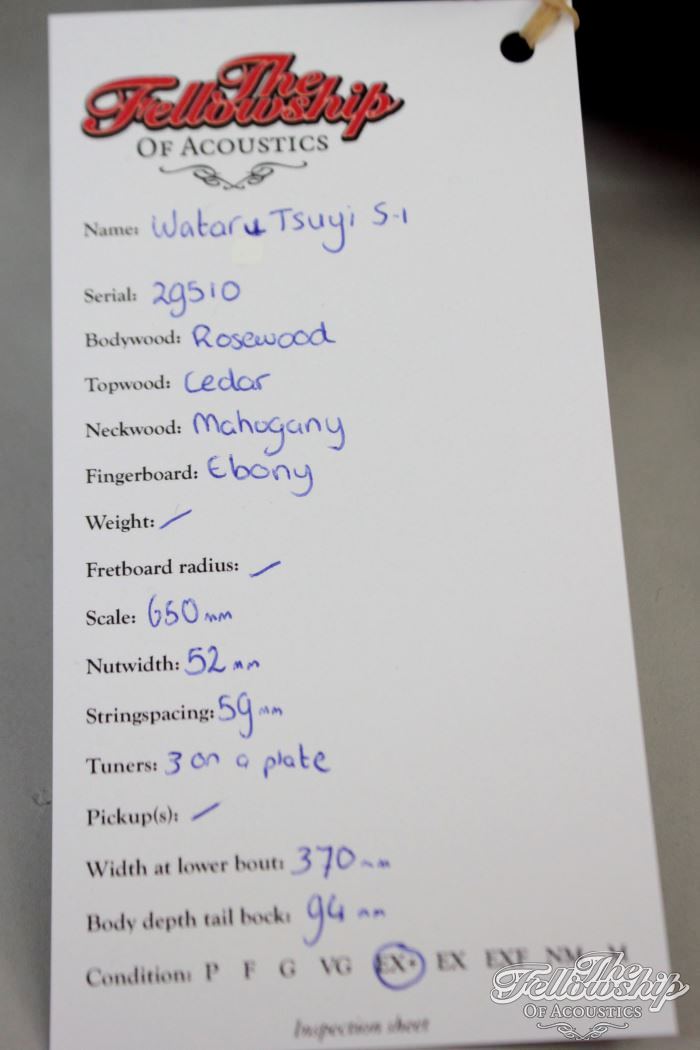 The
Fellowship
OF ACOUSTICS
Name: Wataru Tsuyi S-1
Serial: 29510
Bodywood: Rosewood
Topwood: Cedar
Neckwood: Mahogany
Fingerboard: Ebony
Weight: /
Fretboard radius: /
Scale: 650 mm
Nutwidth: 52 mm
Stringspacing: 59 mm
Tuners: 3 on a plate
Pickup(s): /
Width at lower bout: 370 mm
Body depth tail bock: 94 mm
Condition: P F G VG EX+ EX EXF NM M
Inspection sheet
The
Fellowship
OF ACOUSTICS